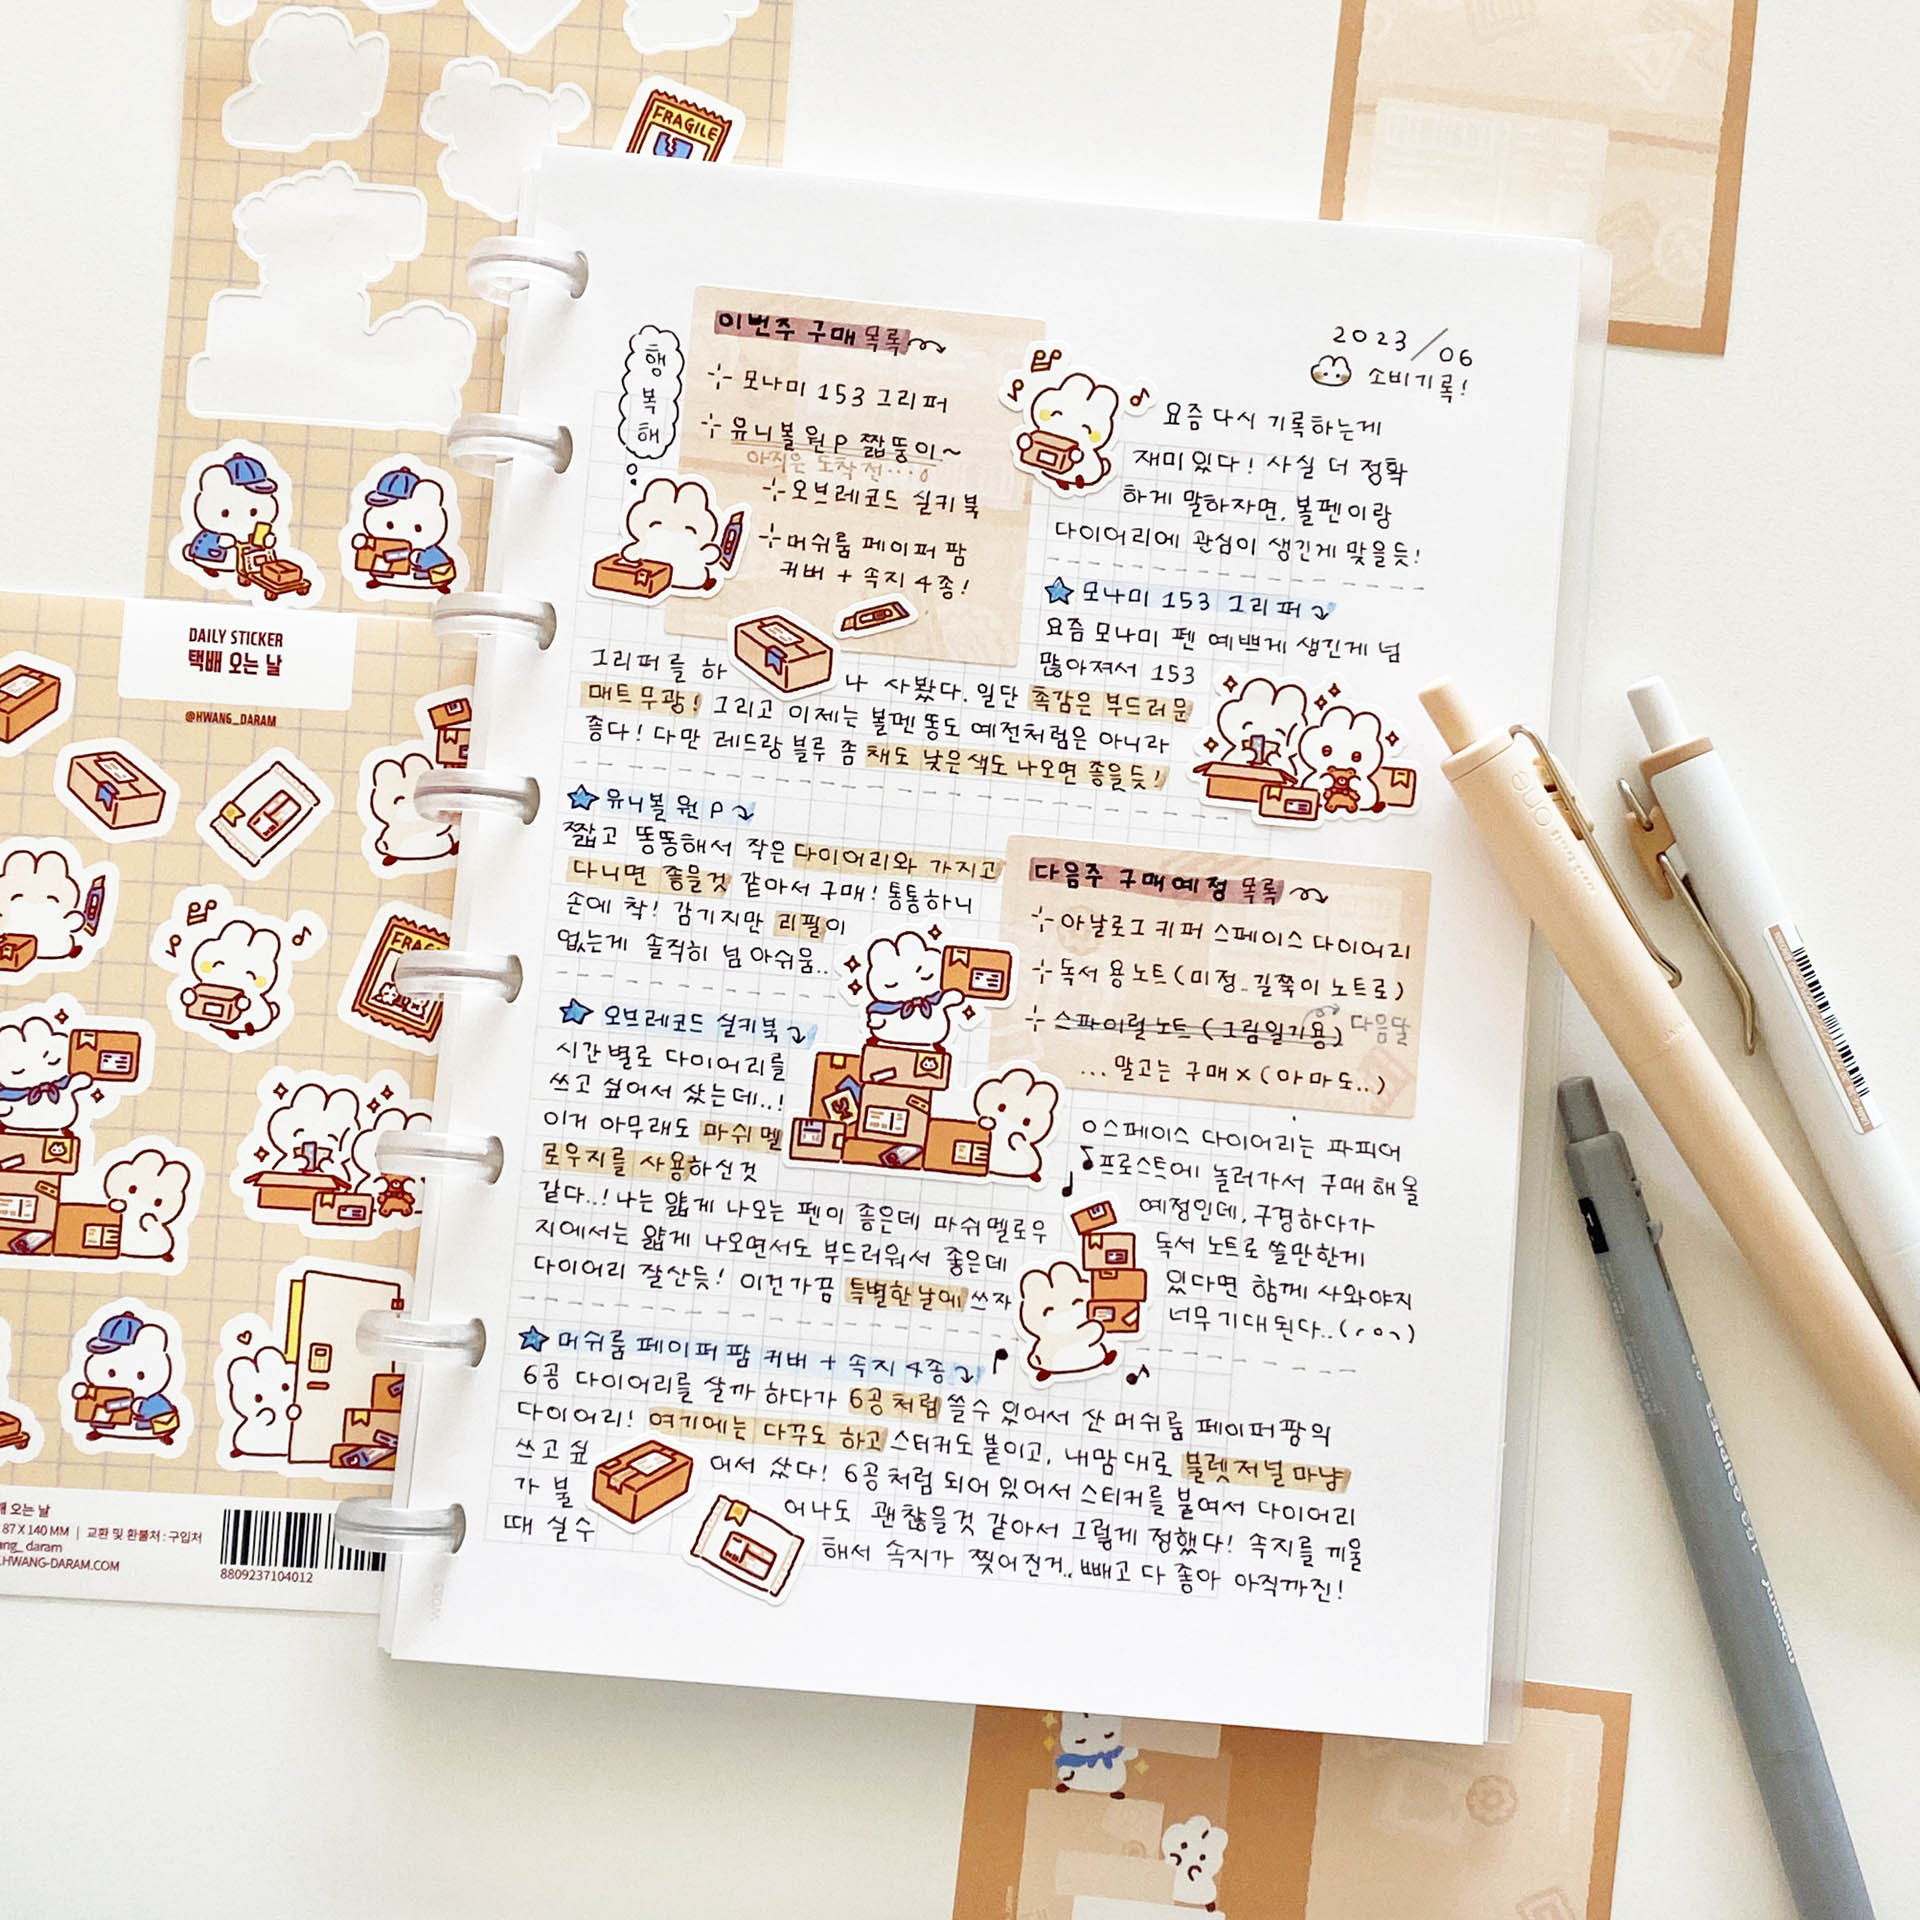 FRAGILE
DAILY STICKER
택배 오는 날
@HWANG_DARAM
FRAG
배 오는 날
87 X 140 MM | 교환 및 환불처 : 구입처
ng_daram
.HWANG-DARAM.COM
8809237104012
행복해
이번주 구매 목록
모나미 153 그리퍼
유니볼 원 P 짧뚱이~
아직은 도착 전...
오브레코드 실키북
머쉬룸 페이퍼 팜
커버 + 속지 4종!
2023/06
소비기록!
요즘 다시 기록하는게
재미있다! 사실 더 정확
하게 말하자면, 볼펜이랑
다이어리에 관심이 생긴게 맞을듯!
모나미 153 그리퍼
요즘 모나미 펜 예쁘게 생긴게 넘
많아져서 153
그리퍼를 하나 사봤다. 일단 촉감은 부드러운
매트무광! 그리고 이제는 볼펜 똥도 예전처럼은 아니라
좋다! 다만 레드랑 블루 좀 채도 낮은색도 나오면 좋을듯!
유니볼 원 P
짧고 똥똥해서 작은 다이어리와 가지고
다니면 좋을것 같아서 구매! 통통하니
손에 착! 감기지만 리필이
없는게 솔직히 넘 아쉬움..
다음주 구매예정 목록
아날로그 키퍼 스페이스 다이어리
독서 용 노트 (미정.. 길쭉이 노트로)
스파이럴 노트 (그림일기용) 다음달
... 말고는 구매 x (아마도..)
오브레코드 실키북
시간별로 다이어리를
쓰고 싶어서 샀는데..!
이거 아무래도 마쉬멜
로우지를 사용하신것
같다..! 나는 얇게 나오는 펜이 좋은데 마쉬멜로우
지에서는 얇게 나오면서도 부드러워서 좋은데
다이어리 잘산듯! 이건 가끔 특별한날에 쓰자
스페이스 다이어리는 파피어
프로스트에 놀러가서 구매 해올
예정인데, 구경하다가
독서 노트로 쓸만한게
있다면 함께 사와야지
너무 기대된다..
머쉬룸 페이퍼 팜 커버 + 속지 4종
6공 다이어리를 살까 하다가 6공처럼 쓸수 있어서 산 머쉬룸 페이퍼팜의
다이어리! 여기에는 다꾸도 하고 스티커도 붙이고, 내맘대로 불렛저널 마냥
쓰고 싶어서 샀다! 6공처럼 되어 있어서 스티커를 붙여서 다이어리
가 불어나도 괜찮을것 같아서 그렇게 정했다! 속지를 끼울
때 실수해서 속지가 찢어진거.. 빼고 다 좋아 아직까진!
uni-ball one
monami